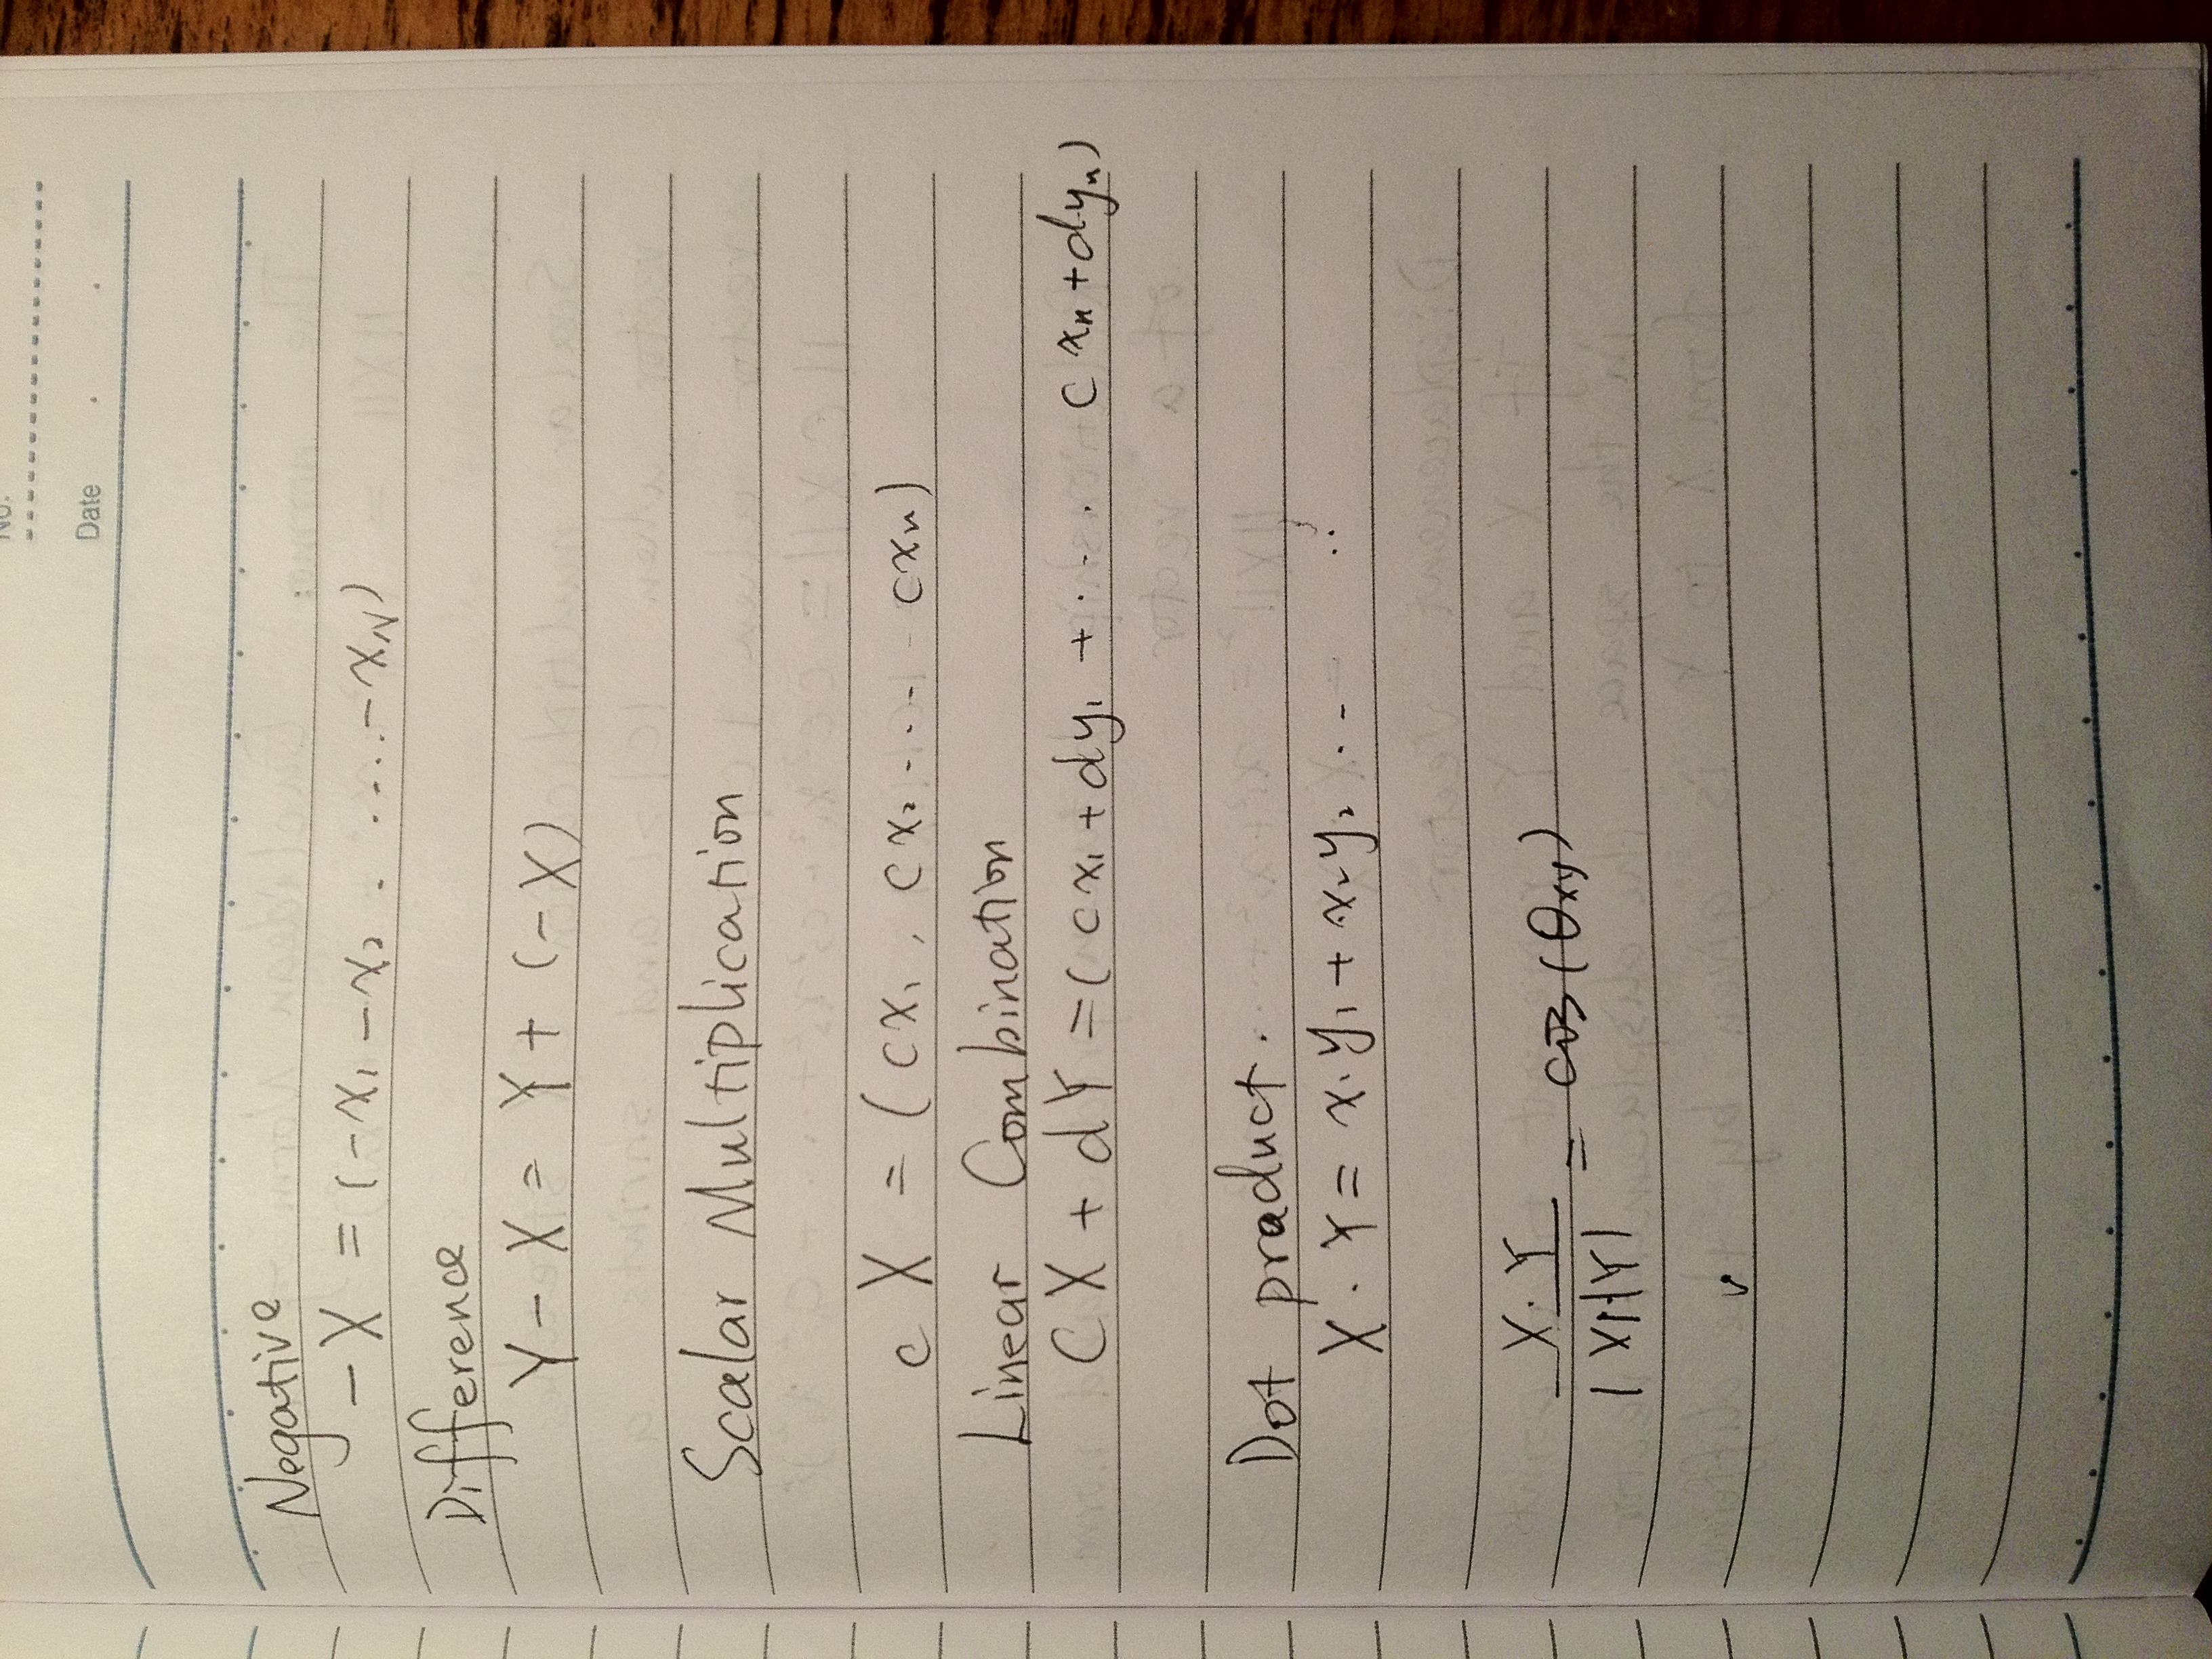 No.
Date . .
Negative
-X = (-x₁ -x₂ . . . . . -x_N)
Difference
Y - X = Y + (-X)
Scalar Multiplication
c X = (cx₁, cx₂ . - . . - cxₙ)
Linear Combination
CX + dY = (cx₁ + dy₁ + . . . . cxₙ + dyₙ)
Dot product .
X · Y = x₁y₁ + x₂y₂ . . -
X · Y
|X||Y| = cos(θxy)